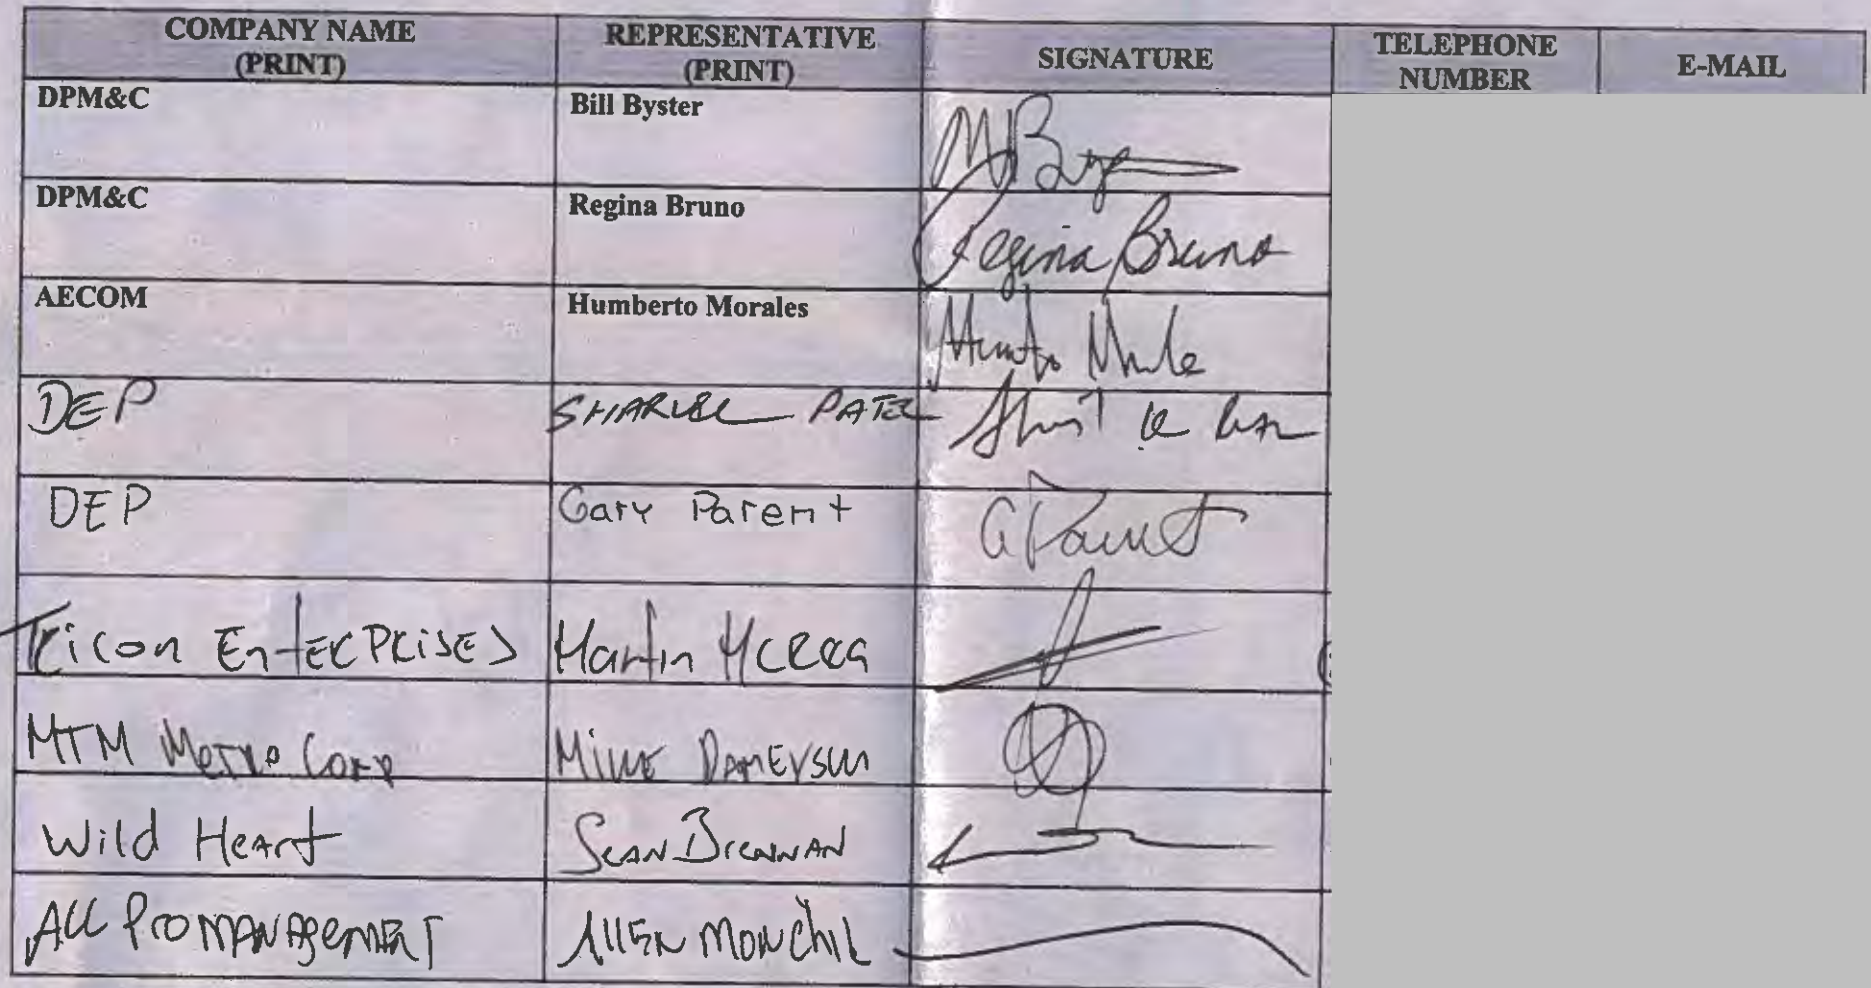 COMPANY NAME REPRESENTATIVE SIGNATURE TELEPHONE E-MAIL
(PRINT) (PRINT) NUMBER
DPM&C Bill Byster
DPM&C Regina Bruno Regina Bruno
AECOM Humberto Morales
DEP PATEL
DEP Gary Parent G Parent
Tricon EnterPrises Martin
MTM Metro Corp Mike
Wild Heart Sean Brennan
All Pro Management Allen Monchil